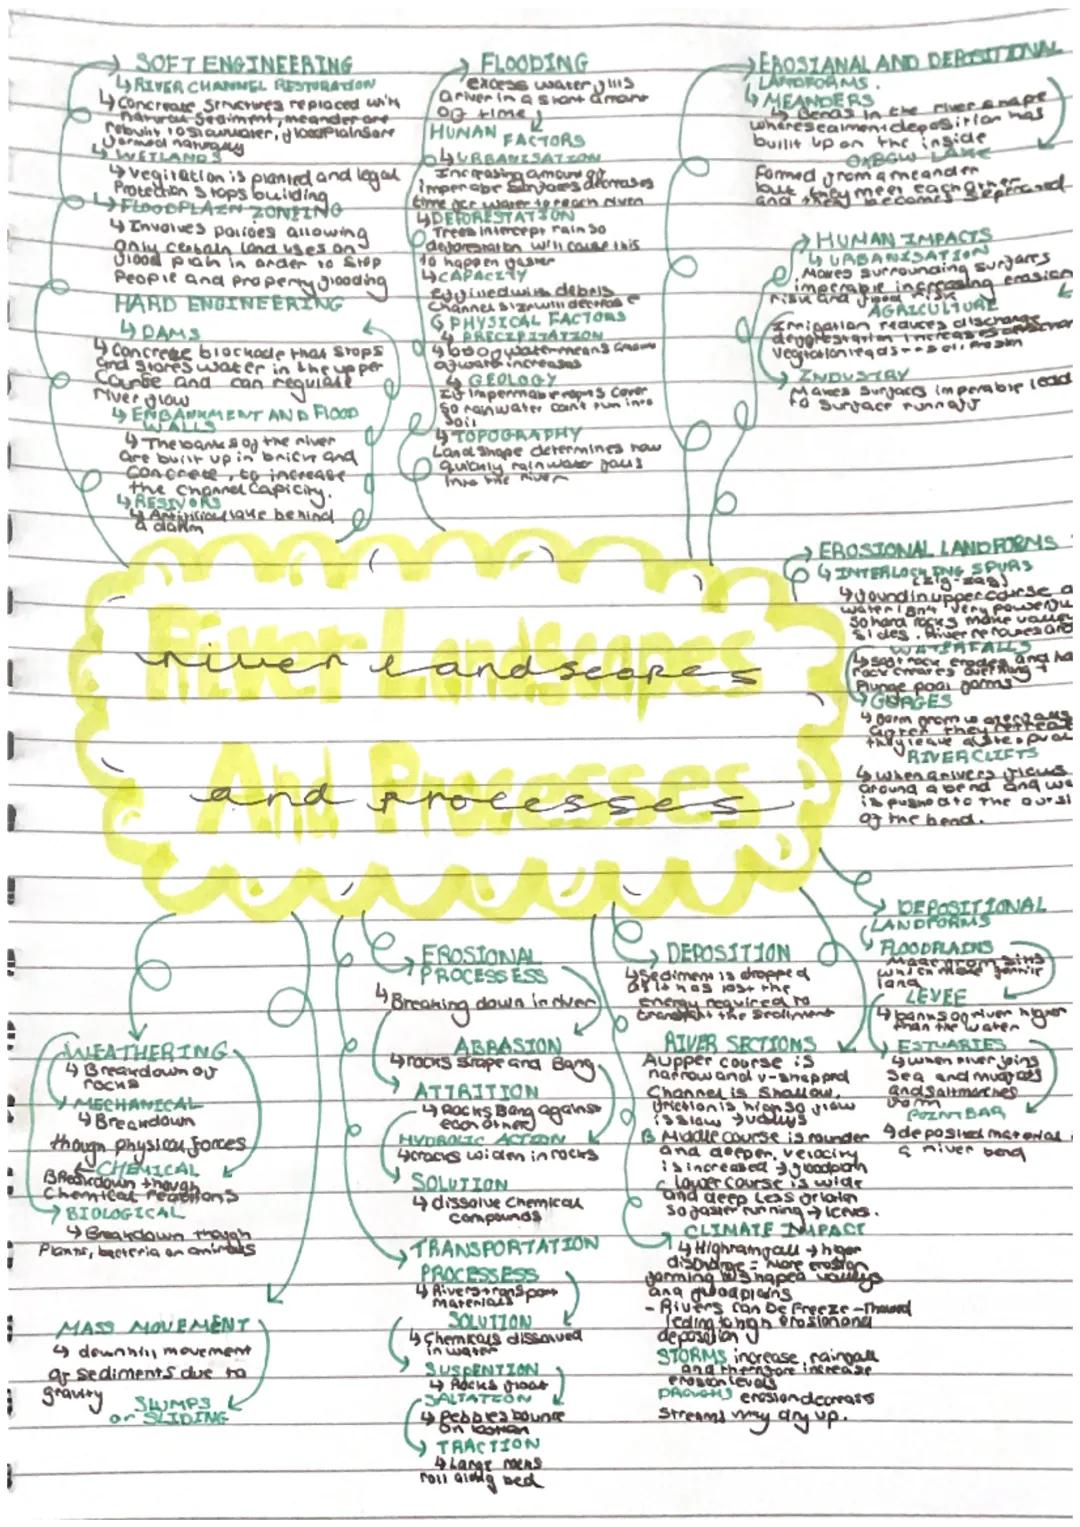 SOFT ENGINEERING
↳ RIVER CHANNEL RESTORATION
↳ Concrease Structures replaced with
natural Sediment, meander are
rebuilt to slow water, floodplains are
formed naturally
↳ WETLANDS
↳ Vegitation is planted and legal
Protection stops building
↳ FLOODPLAIN ZONEING
↳ Involves policies allowing
only certain land uses on
flood plain in order to stop
People and property flooding
HARD ENGINEERING
↳ DAMS
↳ Concrete blockade that stops
and stores water in the upper
Course and can regulate
river flow
↳ ENBANKMENT AND FLOOD
WALLS
↳ The banks of the river
are built up in brick and
concrete, to increase
the channel capicity.
↳ RESIVORS
↳ Artificial lake behind
a damm
FLOODING
excess water fills
a river in a short amont
of time
HUMAN
FACTORS
↳ URBANISATION
Increasing amount of
imperable surfaces decreases
time for water to reach river
↳ DEFORESTATION
Trees intercept rain so
deforestation will cause this
to happen faster
↳ CAPACITY
If filled with debris
Channel size will decrease
↳ PHYSICAL FACTORS
↳ PRECIPITATION
water means
of water increases
↳ GEOLOGY
If impermable rocks cover
so rainwater cant run into
soil
↳ TOPOGRAPHY
Land shape determines how
quickly rainwater falls
into the river
EROSIANAL AND DEPOSITIONAL
LANDFORMS.
↳ MEANDERS
↳ Bends in the river shape
where sediment deposition has
built up on the inside
OXBOW LAKE
Formed from a meander
but they meet each other
and they becomes seperated
HUMAN IMPACTS
↳ URBANISATION
Makes surrounding surfaces
imperable increasing erosion
risk and flood risk
AGRICULTURE
Irrigation reduces discharge
deforestation increases
Vegitation soil erosion
INDUSTRY
Makes surfaces imperable lead
to surface runoff
EROSIONAL LANDFORMS
↳ INTERLOCKING SPURS
(zig-zag)
↳ found in upper course
water isn't very powerful
so hard rocks make valley
sides. River
WATERFALLS
↳ soft rock erodes and ha
rock creates overhang +
Plunge pool forms
GORGES
↳ form from waterfalls
after they retreat
they leave a
RIVER CLIFTS
↳ when a rivers flows
around a bend and wa
is pushed to the outsi
of the bend.
River Landscapes
river landscapes
And Processes
and processes
DEPOSITIONAL
LANDFORMS
FLOODPLAINS
Made from silts
which make
land
LEVEE
↳ banks of river higher
than the water
ESTUARIES
↳ when river joins
Sea and mudflats
and saltmarshes
form
POINT BAR
↳ deposited material
a river bend
WEATHERING
↳ Breakdown of
rocks
MECHANICAL
↳ Breakdown
though physical forces
CHEMICAL
Breakdown though
Chemical reactions
BIOLOGICAL
↳ Breakdown though
Plants, bacteria or animals
MASS MOVEMENT
↳ downhill movement
of sediments due to
gravity
SLUMPS
or SLIDING
EROSIONAL
PROCESSESS
↳ Breaking down in river
ABRASION
↳ rocks scrape and Bang
ATTRITION
↳ Rocks Bang against
each other
HYDROLIC ACTION
↳ cracks widen in rocks
SOLUTION
↳ dissolve Chemical
compounds
TRANSPORTATION
PROCESSESS
↳ Rivers transport
materials
SOLUTION
↳ Chemicals dissolved
in water
SUSPENTION
↳ Rocks float
SALTATION
↳ Pebbles bounce
on bottom
TRACTION
↳ Large rocks
roll along bed
DEPOSITION
↳ Sediment is dropped
as it has lost the
energy required to
transport the sediment
RIVER SECTIONS
A upper course is
narrow and v-shapped
Channel is shallow,
friction is high so flow
is slow → valleys
B Middle course is rounder
and deeper. velocity
is increased → floodplain
C lower course is wide
and deep less friction
so faster running → levees.
CLIMATE IMPACT
↳ High rainfall → higer
discharge = more erosion
forming V shaped valleys
and floodplains
- Rivers can be Freeze-Thawed
leding to high erosion and
deposition
STORMS increase rainfall
and therefore increase
erosion levels
DROUGHTS erosion decreases
Streams may dry up.